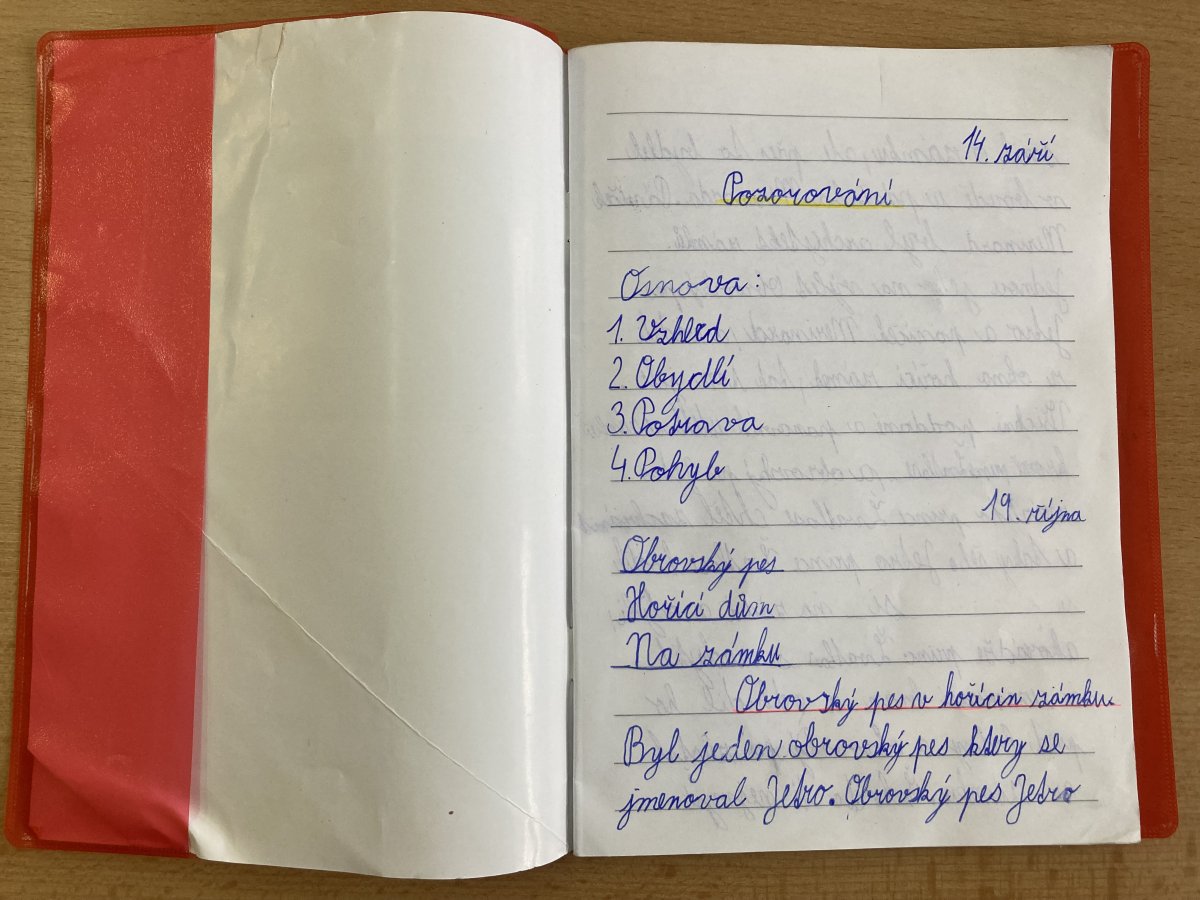 14. září
Pozorování
Osnova:
1. Vzhled
2. Obydlí
3. Potrava
4. Pohyb
19. října
Obrovský pes
Hořící dům
Na zámku
Obrovský pes v hořícin zámku.
Byl jeden obrovský pes ktery se
jmenoval Jetro. Obrovský pes Jetro